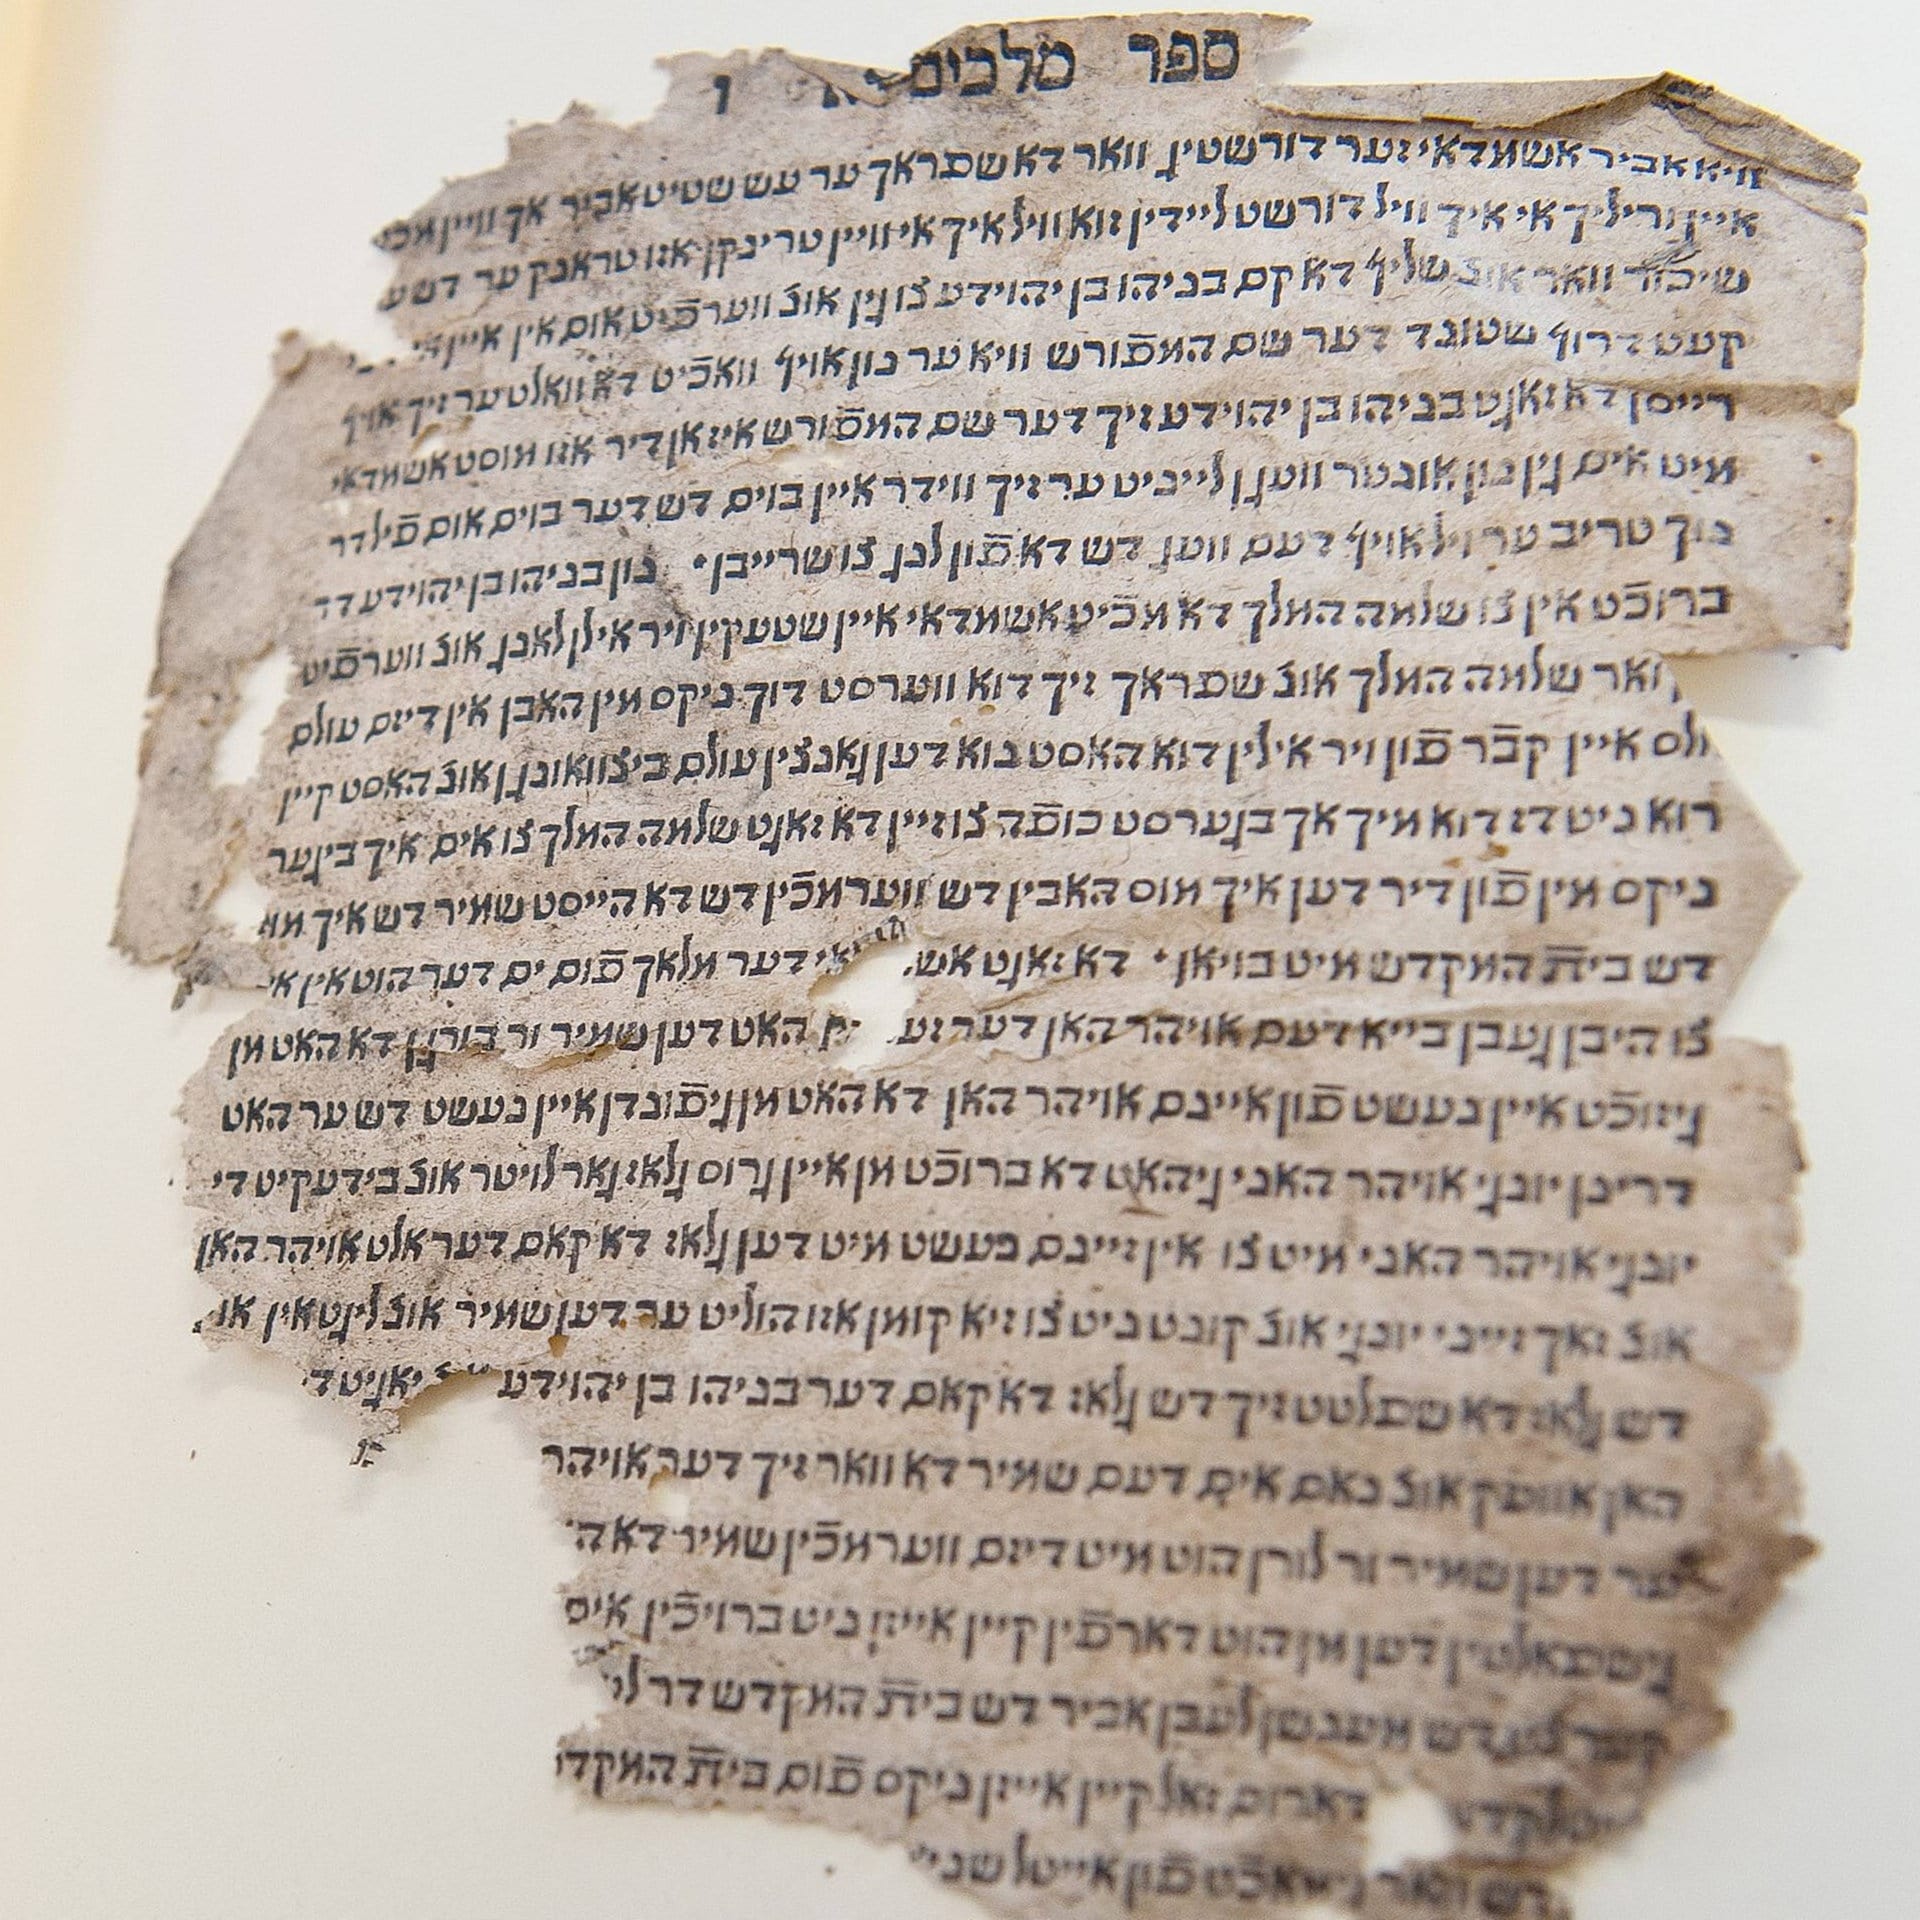 ספר מלכים ו
וויא אביר אשמדאי זער דורשטיג וואר דא שפראך ער עש שטיט אביר אך וויין
איין איך וויל דורשט ליידין זוא וויל איך איי וויין טרינקן אזו טראנק ער דש ער
שיכור וואר אונ' שליף דא קם בניהו בן יהוידע צו גין אונ' ווערפֿיט אום אין איין
קעט דרוף שטונד דער שם המפֿורש וויא ער נון אויף וואכֿיט דא וואלט ער זיך אויף
רייסן דא זאגט בניהו בן יהוידע זיך דער שם המפֿורש איז אן דיר אזו מוסט אשמדאי
מיט אים גין נון אונטר וועגן לייניט ער זיך ווידר איין בוים דש דער בוים אום פֿיל דר
נוך טריב ער ויל אויף דעם וועג דש דא פֿון לנג צו שרייבן נון בניהו בן יהוידע דר
ברוכֿט אין צו שלמה המלך דא מכֿיט אשמדאי איין שטעקין ויר אילן לאנג אונ' ווערפֿיט
ואר שלמה המלך אונ' שפראך זיך דוא ווערסט דוך ניקס מין האבן אין דיזם עולם
אלס איין קבֿר פֿון ויר אילין דוא האסט נוא דען גאנצין עולם ביצוואונגן אונ' האסט קיין
רוא ניט דז דוא מיך אך בגערסט כופֿה צו זיין דא זאגט שלמה המלך צו אים איך ביגער
ניקס מין פֿון דיר דען איך מוס האבין דש ווערמכֿין דש דא הייסט שמיר דש איך
דש בית המקדש מיט בויאן דא זאגט דער מלאך פֿום ים דער הוט אין
צו היבן געבן בייא דעם אויהר האן דער האט דען שמיר ור בורגן דא האט מן
גיזוכֿט איין נעשט פֿון איינם אויהר האן דא האט מן גיפֿונדן איין נעשט דש ער האט
דרינן יונגי אויהר האני גיהאט דא ברוכֿט מן איין גרוס גלאז גאר לויטר אונ' בידעקיט די
יונגי אויהר האני מיט צו אין זיינם נעשט מיט דען גלאז דא קאם דער אלט אויהר האן
אונ' זאך זייני יונגי אונ' קונט ניט צו זיא קומן אזו הוליט ער דען שמיר אונ' ליגט אין
דש גלאז דא שפלטט זיך דש גלאז דא קאם דער בניהו בן יהוידע יאגיט ד
האן אוועק אונ' נאם אים דעם שמיר דא וואר זיך דער אויהר
ער דען שמיר ור לורן הוט מיט דיזם ווערמכֿין שמיר דא
גישפאלטין דען מן הוט דארפֿין קיין אייזן ניט ברויכֿין אים
דש מענשן לעבן אביר דש בית המקדש דר
דארום זאל קיין אייזן ניקס פֿום בית המקד
דש וואר פֿון אייטל